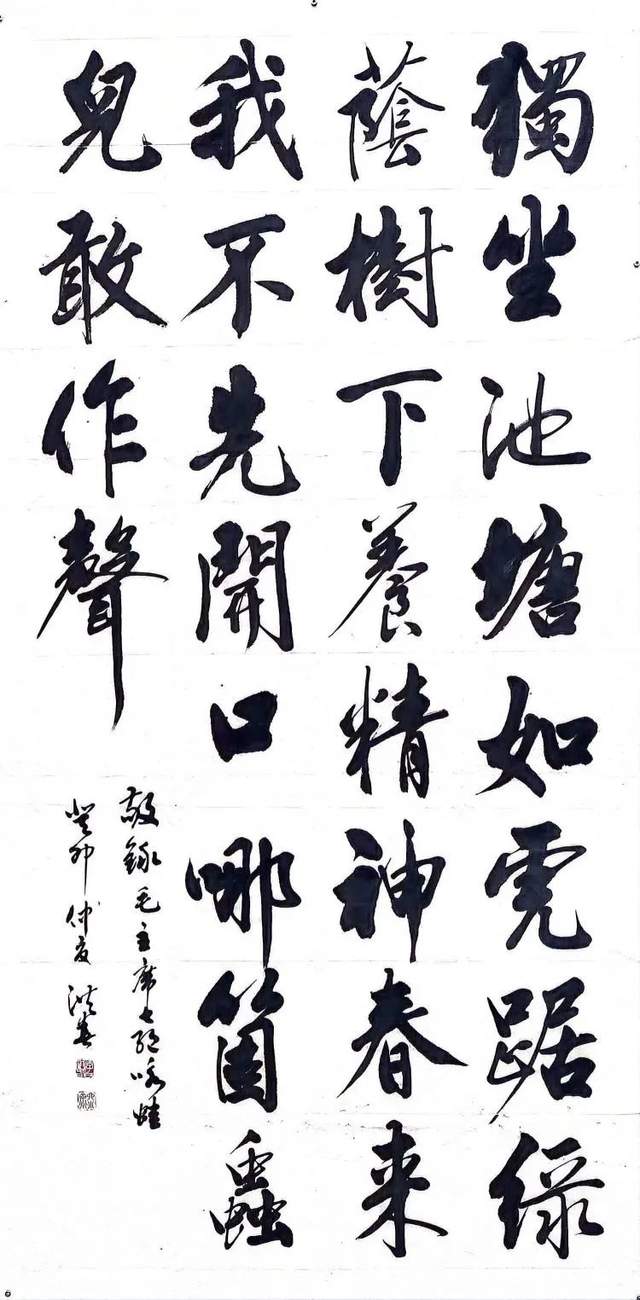 獨坐池塘如虎踞綠
蔭樹下養精神春来
我不先開口哪箇蟲
兒敢作聲
敬錄毛主席七絕咏蛙
癸卯仲夏 洪春